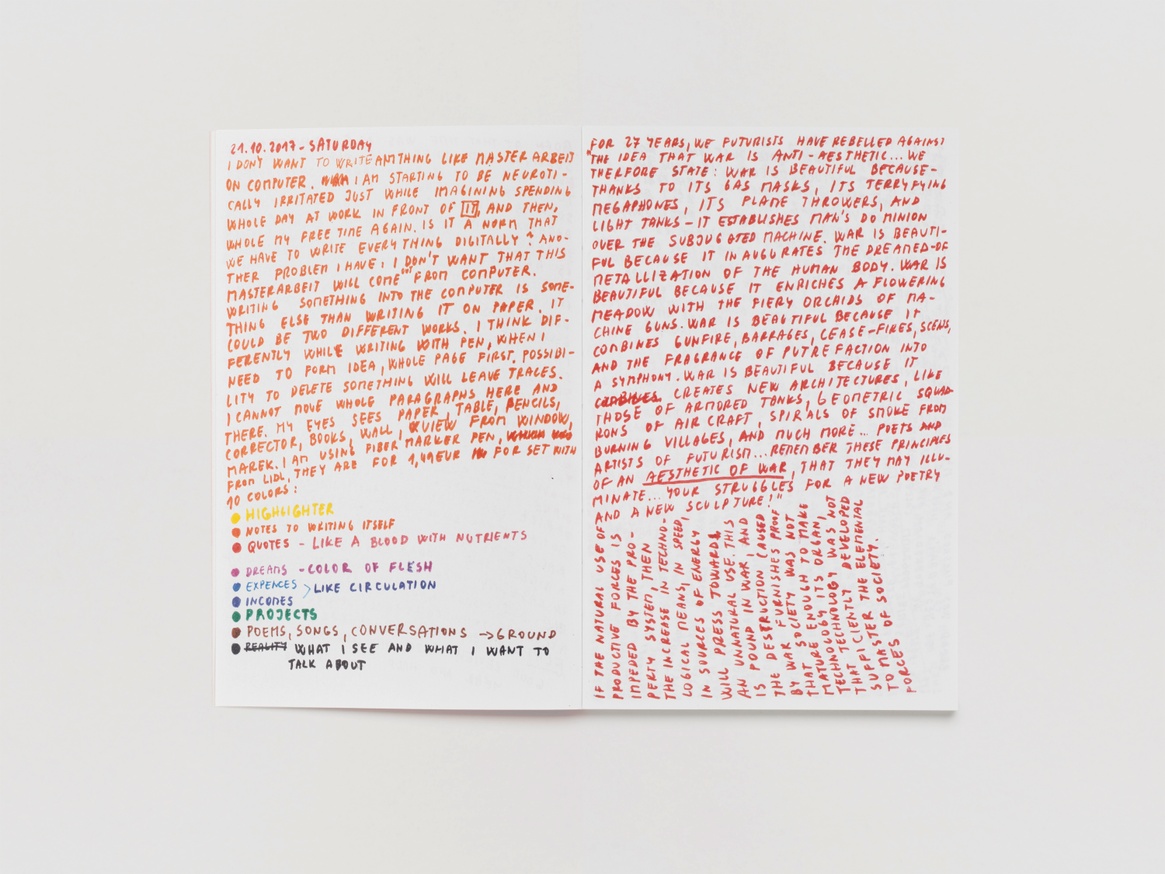 21.10.2017 - SATURDAY
I DON'T WANT TO WRITE ANYTHING LIKE MASTER ARBEIT
ON COMPUTER. I AM STARTING TO BE NEUROTI-
CALLY IRRITATED JUST WHILE IMAGINING SPENDING
WHOLE DAY AT WORK IN FRONT OF IT, AND THEN,
WHOLE MY FREE TIME AGAIN. IS IT A NORM THAT
WE HAVE TO WRITE EVERYTHING DIGITALLY? ANO-
THER PROBLEM I HAVE: I DON'T WANT THAT THIS
MASTERARBEIT WILL COME "" FROM COMPUTER.
WRITING SOMETHING INTO THE COMPUTER IS SOME-
THING ELSE THAN WRITING IT ON PAPER. IT
COULD BE TWO DIFFERENT WORKS. I THINK DIF-
FERENTLY WHILE WRITING WITH PEN, WHEN I
NEED TO FORM IDEA, WHOLE PAGE FIRST. POSSIBI-
LITY TO DELETE SOMETHING WILL LEAVE TRACES.
I CANNOT MOVE WHOLE PARAGRAPHS HERE AND
THERE. MY EYES SEES PAPER, TABLE, PENCILS,
CORRECTOR, BOOKS, WALL, VIEW FROM WINDOW,
MAREK. I AM USING FIBER MARKER PEN,
FROM LIDL, THEY ARE FOR 1,49EUR FOR SET WITH
10 COLORS:
HIGHLIGHTER
NOTES TO WRITING ITSELF
QUOTES - LIKE A BLOOD WITH NUTRIENTS
DREAMS - COLOR OF FLESH
EXPENCES > LIKE CIRCULATION
INCOMES
PROJECTS
POEMS, SONGS, CONVERSATIONS → GROUND
REALITY WHAT I SEE AND WHAT I WANT TO
TALK ABOUT
FOR 27 YEARS, WE FUTURISTS HAVE REBELLED AGAINST
"THE IDEA THAT WAR IS ANTI-AESTHETIC... WE
THERFORE STATE: WAR IS BEAUTIFUL BECAUSE-
THANKS TO ITS GAS MASKS, ITS TERRYFYING
MEGAPHONES, ITS FLAME THROWERS, AND
LIGHT TANKS - IT ESTABLISHES MAN'S DOMINION
OVER THE SUBJUGATED MACHINE. WAR IS BEAUTI-
FUL BECAUSE IT INAUGURATES THE DREAMED-OF
METALLIZATION OF THE HUMAN BODY. WAR IS
BEAUTIFUL BECAUSE IT ENRICHES A FLOWERING
MEADOW WITH THE FIERY ORCHIDS OF MA-
CHINE GUNS. WAR IS BEAUTIFUL BECAUSE IT
COMBINES GUNFIRE, BARRAGES, CEASE-FIRES, SCENS,
AND THE FRAGRANCE OF PUTREFACTION INTO
A SYMPHONY. WAR IS BEAUTIFUL BECAUSE IT
COMBINES CREATES NEW ARCHITECTURES, LIKE
THOSE OF ARMORED TANKS, GEOMETRIC SQUAD-
RONS OF AIRCRAFT, SPIRALS OF SMOKE FROM
BURNING VILLAGES, AND MUCH MORE... POETS AND
ARTISTS OF FUTURISM... REMEMBER THESE PRINCIPLES
OF AN AESTHETIC OF WAR, THAT THEY MAY ILLU-
MINATE... YOUR STRUGGLES FOR A NEW POETRY
AND A NEW SCULPTURE!"
IF THE NATURAL USE OF
PRODUCTIVE FORCES IS
IMPEDED BY THE PRO-
PERTY SYSTEM, THEN
THE INCREASE IN TECHNO-
LOGICAL MEANS, IN SPEED,
IN SOURCES OF ENERGY
WILL PRESS TOWARDS
AN UNNATURAL USE. THIS
IS FOUND IN WAR, AND
THE DESTRUCTION CAUSED
BY WAR FURNISHES PROOF
THAT SOCIETY WAS NOT
MATURE ENOUGH TO MAKE
TECHNOLOGY ITS ORGAN,
THAT TECHNOLOGY WAS NOT
SUFFICIENTLY DEVELOPED
TO MASTER THE ELEMENTAL
FORCES OF SOCIETY.